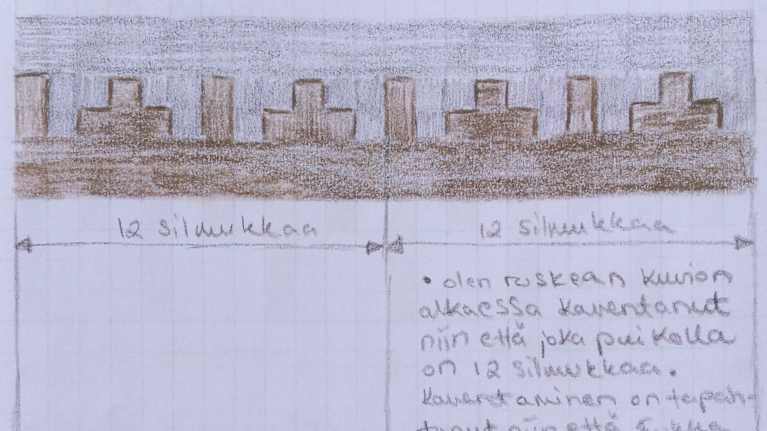 12 silmukkaa
12 silmukkaa
• olen ruskean kuvion
alkaessa kaventanut
niin että joka puikolla
on 12 silmukkaa.
Kaventaminen on tapah-
tunut niin että